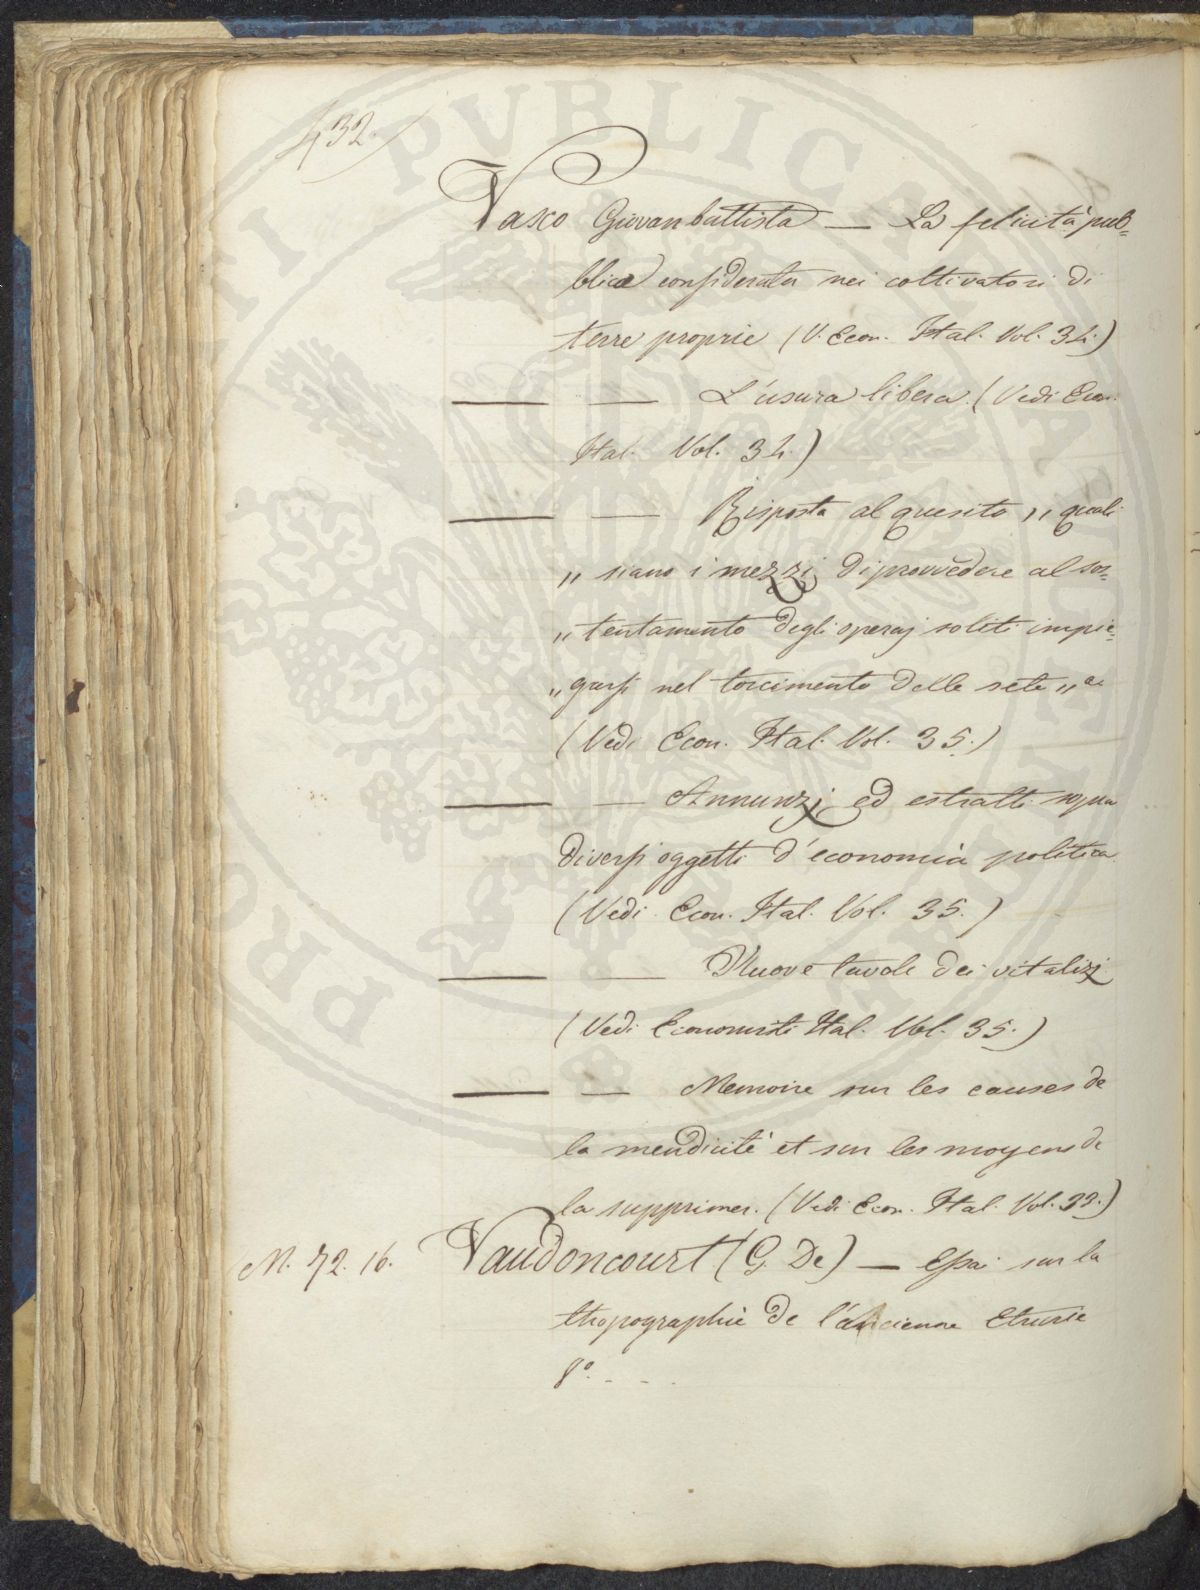 432.
Vasco Giovanbattista — La felicità pub=
blica considerata nei coltivatori di
terre proprie (V. Econ. Ital. Vol. 34.)
— — L'usura libera. (Vedi Econ.
Ital. Vol. 34.)
— — Risposta al quesito „ quali
„ siano i mezzi di provvedere al sos=
„ tentamento degli operaj soliti impie=
„ garsi nel torcimento delle sete „ &c
(Vedi Econ. Ital. Vol. 35.)
— — Annunzj ed estratti sopra
diversi oggetti d'economia politica
(Vedi Econ. Ital. Vol. 35.)
— — Nuove tavole dei vitalizj
(Vedi Economisti Ital. Vol. 35.)
— — Memoire sur les causes de
la mendicité et sur les moyens de
la supprimer. (Vedi Econ. Ital. Vol. 33.)
M. 72. 16. Vaudoncourt (G. De) — Essai sur la
thopographie de l'ancienne Etrurie
8º. - - .
PROPRIETI PUBLICA